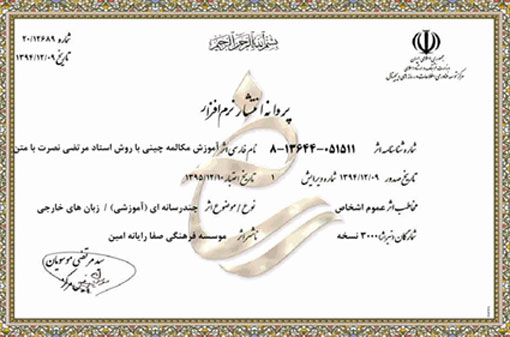 بسم الله الرحمن الرحیم
شماره ۲۰/۱۲۶۸۹
تاریخ ۱۳۹۴/۱۲/۰۹
جمهوری اسلامی ایران
وزارت فرهنگ و ارشاد اسلامی
مرکز توسعه فناوری اطلاعات و رسانه های دیجیتال
پروانه انتشار نرم افزار
شماره شناسنامه اثر ۸-۱۳۶۴۴-۰۵۱۵۱۱ نام فارسی اثر آموزش مکالمه چینی با روش استاد مرتضی نصرت با متن
تاریخ صدور ۱۳۹۴/۱۲/۰۹ شماره ویرایش ۱ تاریخ اعتبار ۱۳۹۵/۱۲/۱۰
مخاطب اثر عموم اشخاص نوع / موضوع اثر چندرسانه ای (آموزشی) / زبان های خارجی
شمارگان ۳۰۰۰ نسخه ناشر اثر موسسه فرهنگی صفا رایانه امین
سید مرتضی موسویان
رئیس مرکز